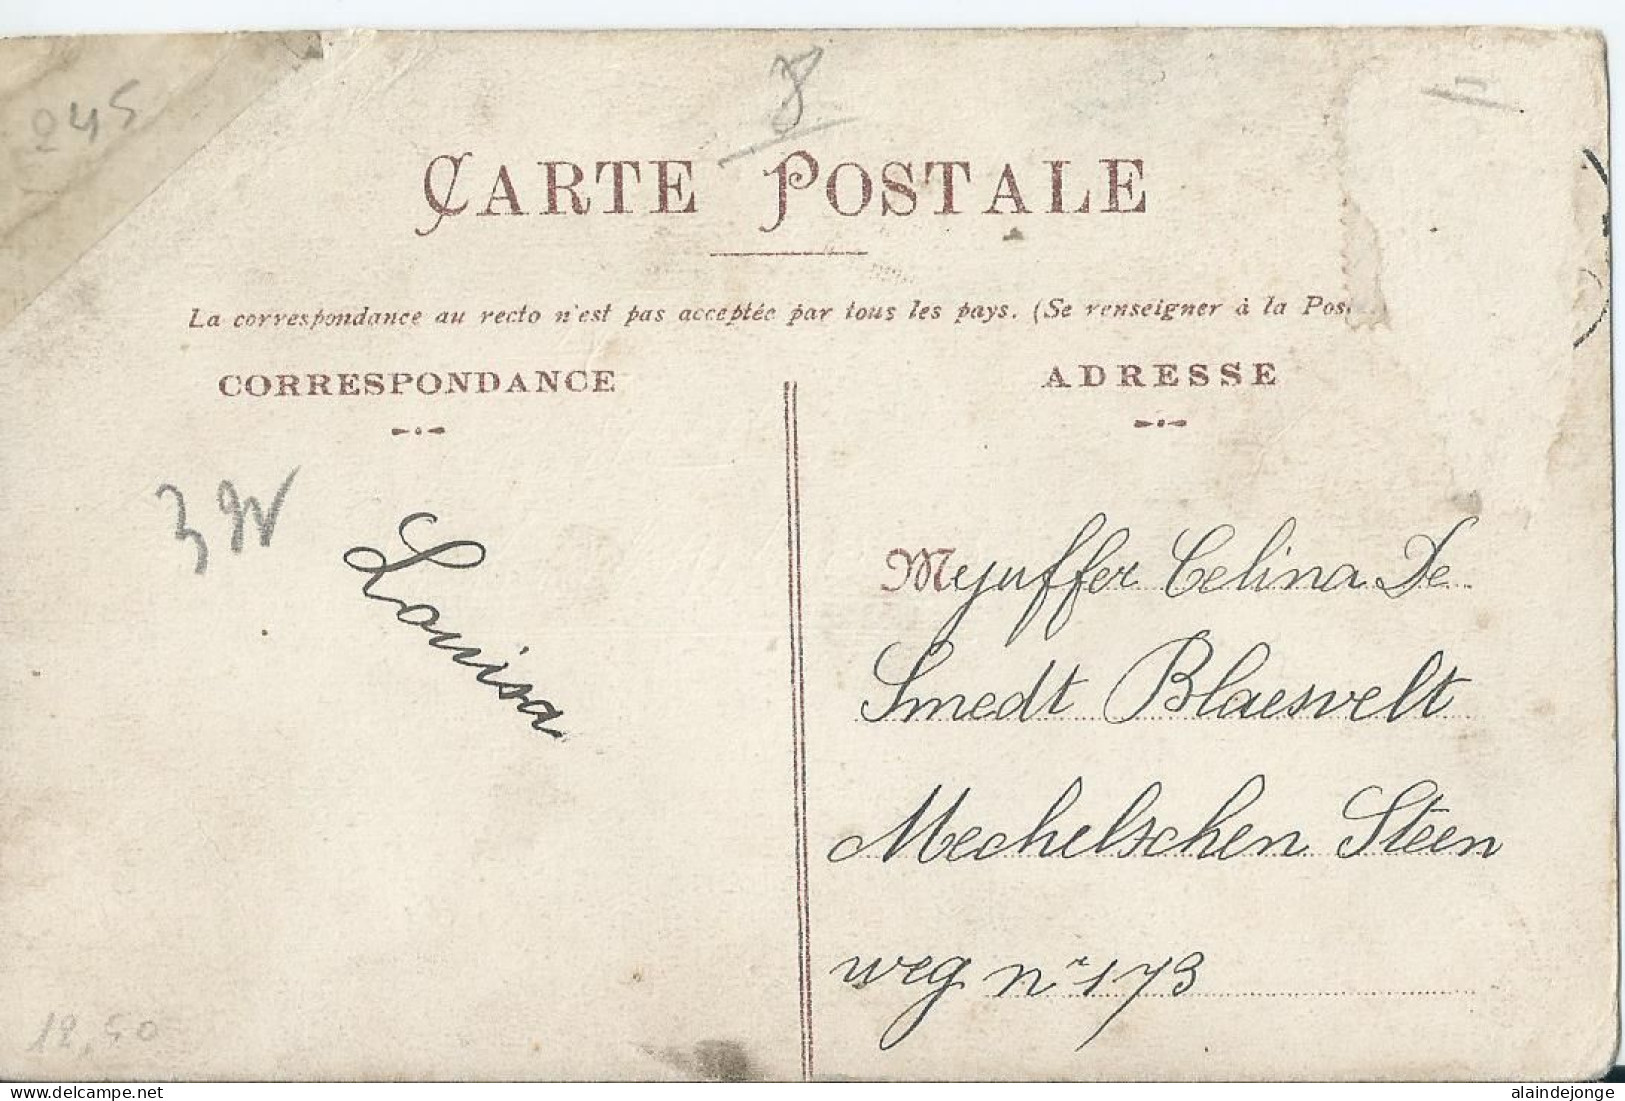 245
8
CARTE POSTALE
La correspondance au recto n'est pas acceptée par tous les pays. (Se renseigner à la Pos
CORRESPONDANCE
ADRESSE
Louisa
Mejuffer Celina De
Smedt Blaesvelt
Mechelschen Steen
weg nr 173
12,50
alaindejonge